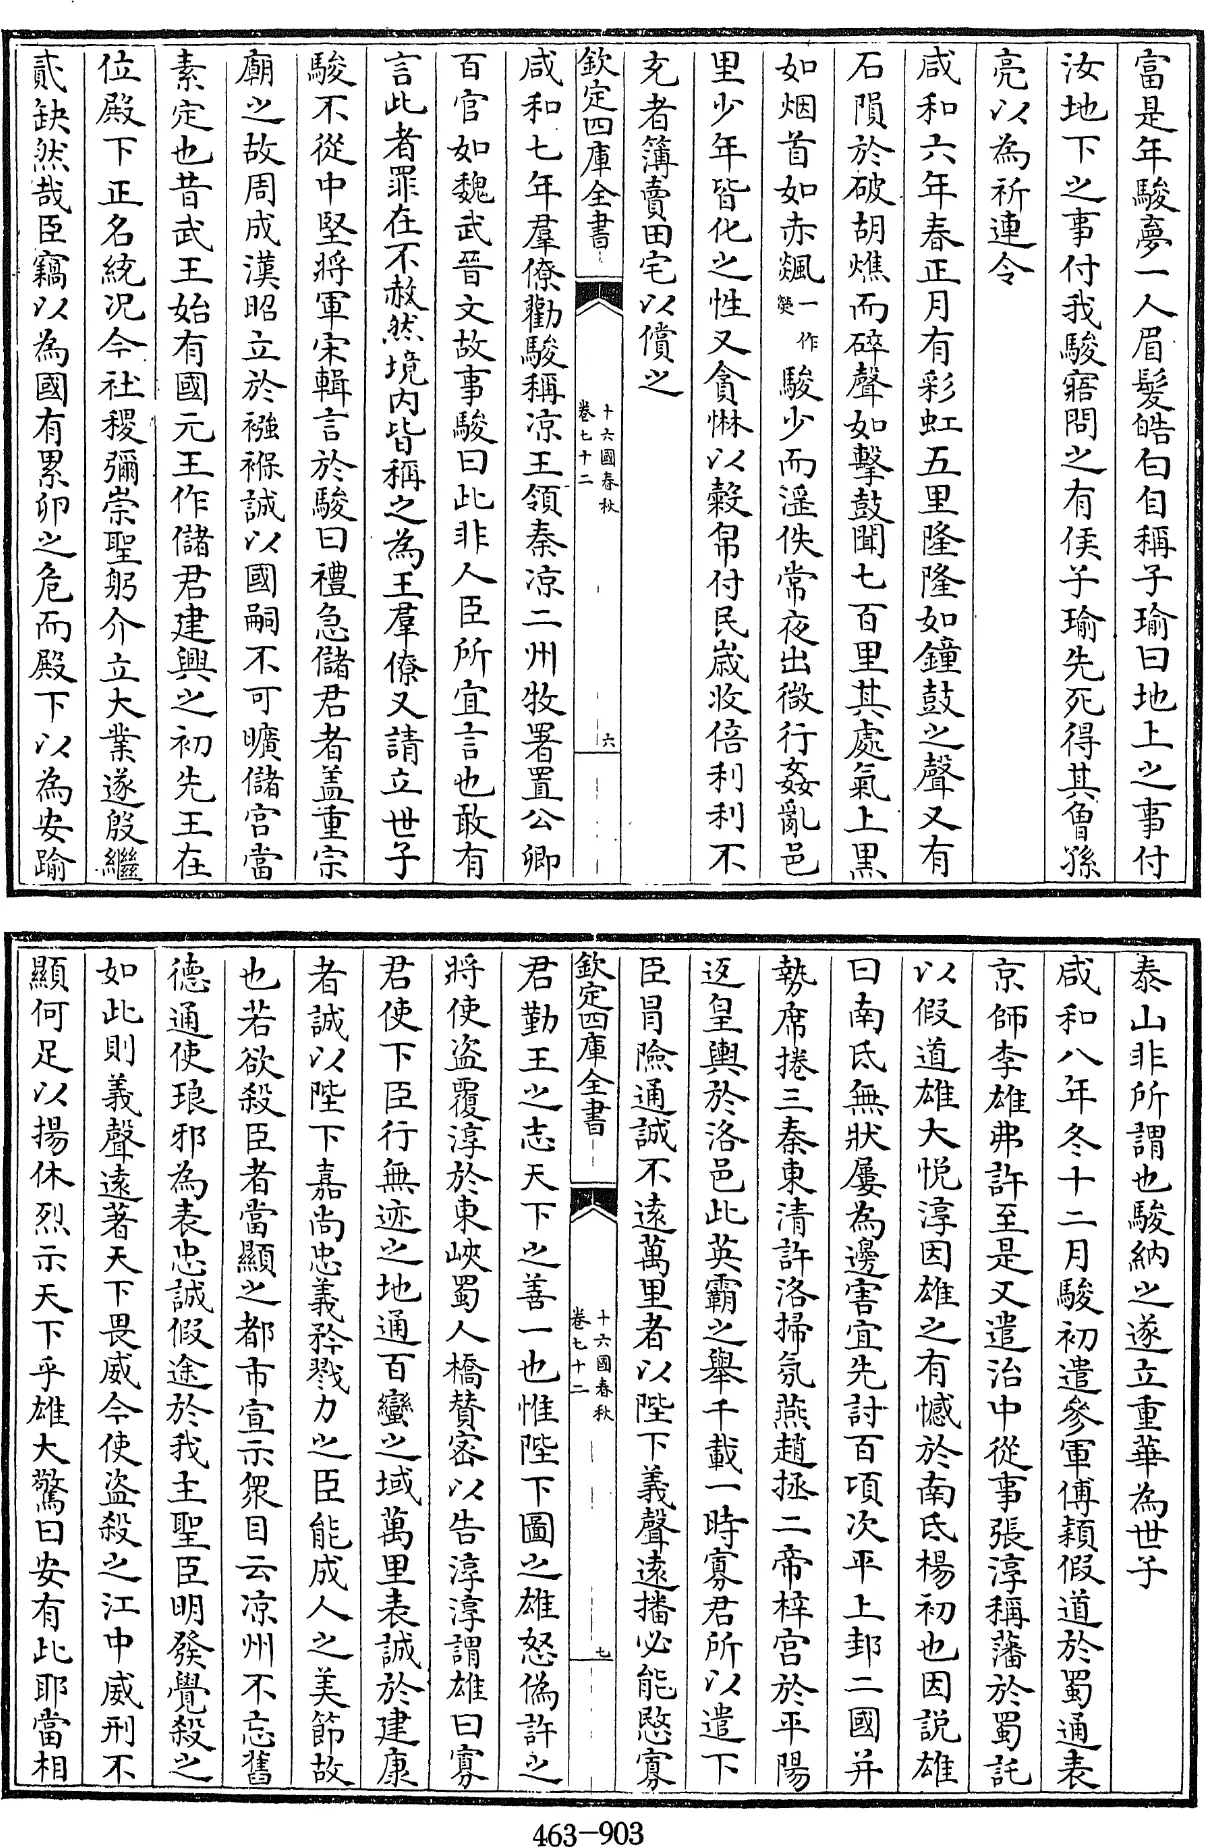 富是年駿夢一人眉髮皓白自稱子瑜曰地上之事付
汝地下之事付我駿寤問之有侯子瑜先死得其曾孫
亮以為祈連令
咸和六年春正月有彩虹五里隆隆如鐘鼓之聲又有
石隕於破胡燋而碎聲如擊鼓聞七百里其處氣上黑
如烟首如赤飊一作熒駿少而淫佚常夜出微行姦亂邑
里少年皆化之性又貪惏以穀帛付民嵗收倍利利不
充者簿賣田宅以償之
欽定四庫全書
十六國春秋
卷七十二
六
咸和七年羣僚勸駿稱凉王領秦凉二州牧署置公卿
百官如魏武晉文故事駿曰此非人臣所宜言也敢有
言此者罪在不赦然境内皆稱之為王羣僚又請立世子
駿不從中堅將軍宋輯言於駿曰禮急儲君者盖重宗
廟之故周成漢昭立於襁褓誠以國嗣不可曠儲宫當
素定也昔武王始有國元王作儲君建興之初先王在
位殿下正名統况今社稷彌崇聖躬介立大業遂殷繼
貳缺然哉臣竊以為國有累卵之危而殿下以為安踰
泰山非所謂也駿納之遂立重華為世子
咸和八年冬十二月駿初遣參軍傅穎假道於蜀通表
京師李雄弗許至是又遣治中從事張淳稱藩於蜀託
以假道雄大悦淳因雄之有憾於南氐楊初也因説雄
曰南氐無狀屢為邊害宜先討百項次平上邽二國并
勢席捲三秦東清許洛掃氛燕趙拯二帝梓宫於平陽
返皇輿於洛邑此英霸之舉千載一時寡君所以遣下
臣冒險通誠不逺萬里者以陛下義聲逺播必能愍寡
欽定四庫全書
十六國春秋
卷七十二
七
君勤王之志天下之善一也惟陛下圖之雄怒偽許之
將使盗覆淳於東峽蜀人橋賛密以告淳淳謂雄曰寡
君使下臣行無迹之地通百蠻之域萬里表誠於建康
者誠以陛下嘉尚忠義矜戮力之臣能成人之美節故
也若欲殺臣者當顯之都市宣示衆目云凉州不忘舊
德通使琅邪為表忠誠假途於我主聖臣明發覺殺之
如此則義聲逺著天下畏威今使盗殺之江中威刑不
顯何足以揚休烈示天下乎雄大驚曰安有此耶當相
463-903